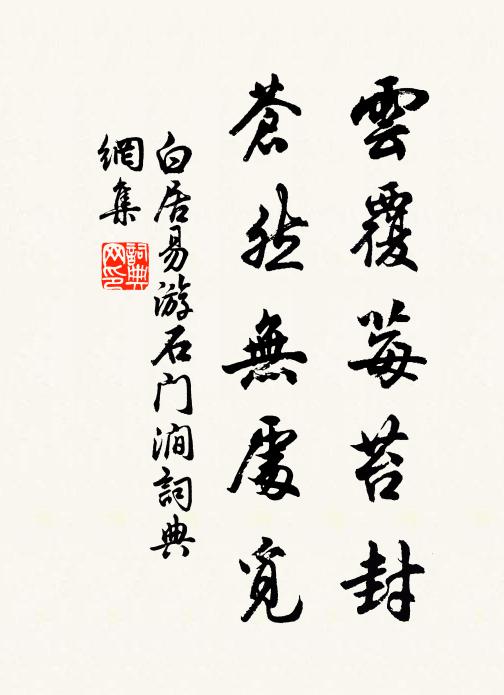 雲覆莓苔封
蒼然無處覓
白居易游石门澗詞典
網集
詞典网印